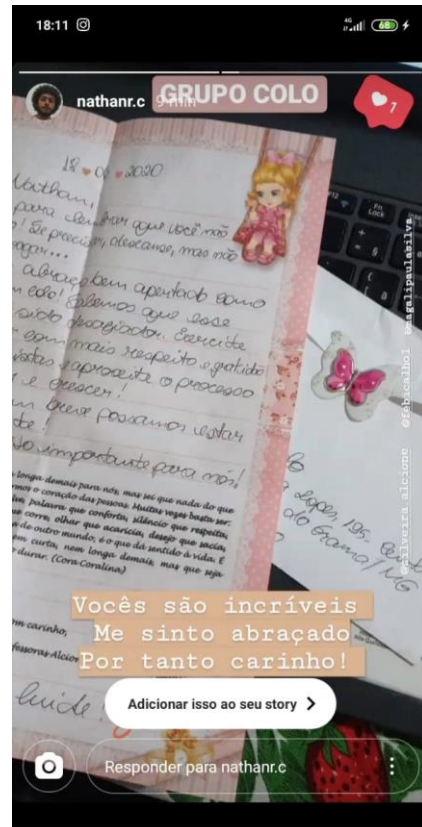 18:11
4G
68
nathanr.c 9 min
GRUPO COLO
1
18 09 2020
Nathan,
para lembrar que você não
! Se precisar, descanse, mas não
abraço bem apertado como
colo! Sabemos que esse
sido desafiador. Exercite
com mais respeito e gratidão
aproveite o processo
e crescer!
breve possamos estar
importante para nós!
longa demais para nós, mas sei que nada do que
o coração das pessoas. Muitas vezes basta ser:
palavra que conforta, silêncio que respeita,
corre, olhar que acaricia, desejo que sacia,
de outro mundo, é o que dá sentido à vida. É
curta, nem longa demais, mas que seja
durar. (Cora Coralina)
com carinho,
Alcion
F12
Fn
Lock
Lopes, 195.
do Grama/MG
@silveira alcione @febicalhol @magalipaulasilva.
Vocês são incríveis
Me sinto abraçado
Por tanto carinho!
Adicionar isso ao seu story
Responder para nathanr.c